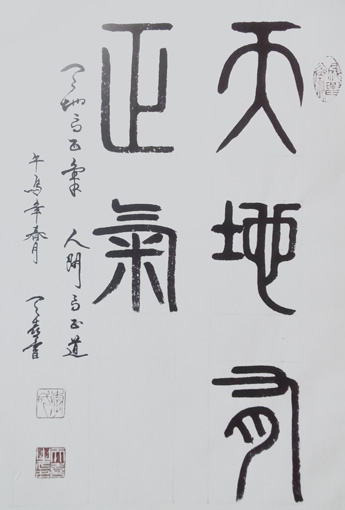 天地有
正氣
天地有正氣 人間有正道
午馬年春月